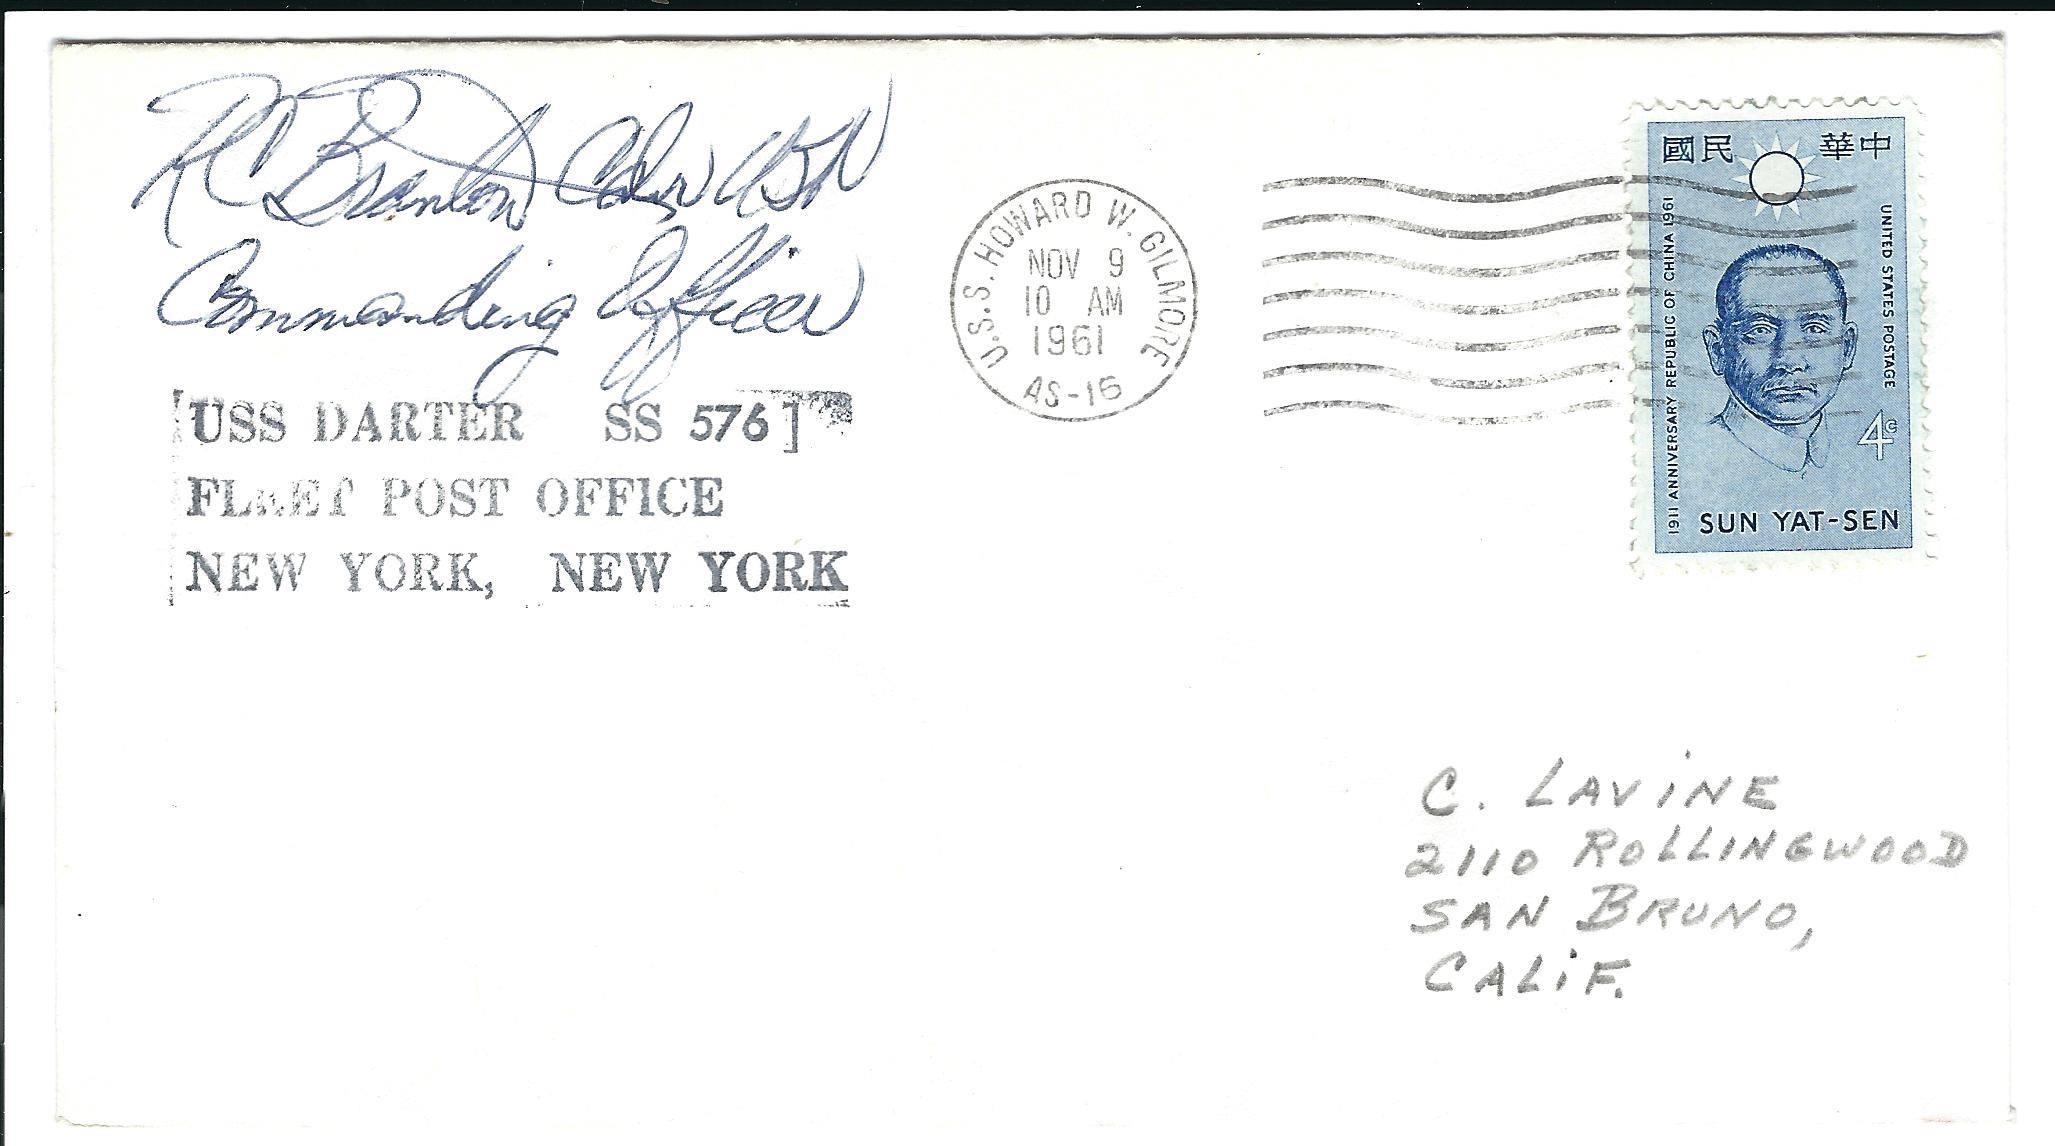 Commanding Officer
[USS DARTER SS 576]
FLEET POST OFFICE
NEW YORK, NEW YORK
U.S.S. HOWARD W. GILMORE
NOV 9
10 AM
1961
AS-16
國民 華中
1911 ANNIVERSARY REPUBLIC OF CHINA 1961
UNITED STATES POSTAGE
4c
SUN YAT-SEN
C. LAVINE
2110 ROLLINGWOOD
SAN BRUNO,
CALIF.